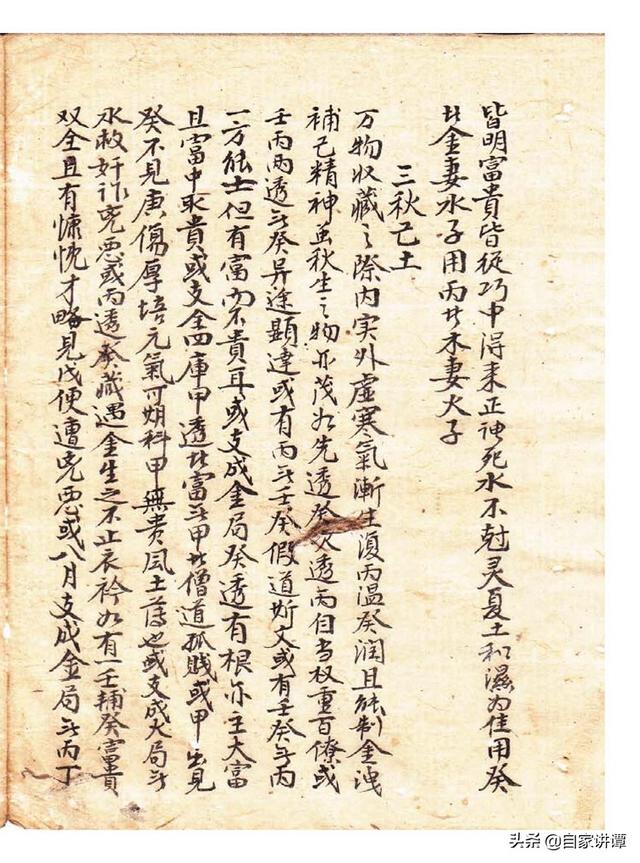 皆明富貴皆從巧中得来正神死水不尅灵夏土和濕为佳用癸
者金妻水子用丙者木妻火子
三秋己土
万物收藏之際内实外虚寒氣漸生復丙温癸润且能制金洩
補己精神並秋生之物亦茂如先透癸又透丙自当权重百僚或
壬丙两透无癸异途顯達或有丙无壬癸假道斯文或有壬癸无丙
一方能士但有富而不貴耳或支成金局癸透有根亦主大富
且富中取貴或支全四庫甲透者富无甲者僧道孤贱或甲出見
癸不見庚傷厚培元氣可期科甲無貴风土薄也或支成火局无
水救奸诈兇恶或丙透癸藏遇金生之不止衣衿如有一壬輔癸富貴
双全且有慷慨才略見戊便遭兇恶或八月支成金局无丙丁
头条 @自家讲谭